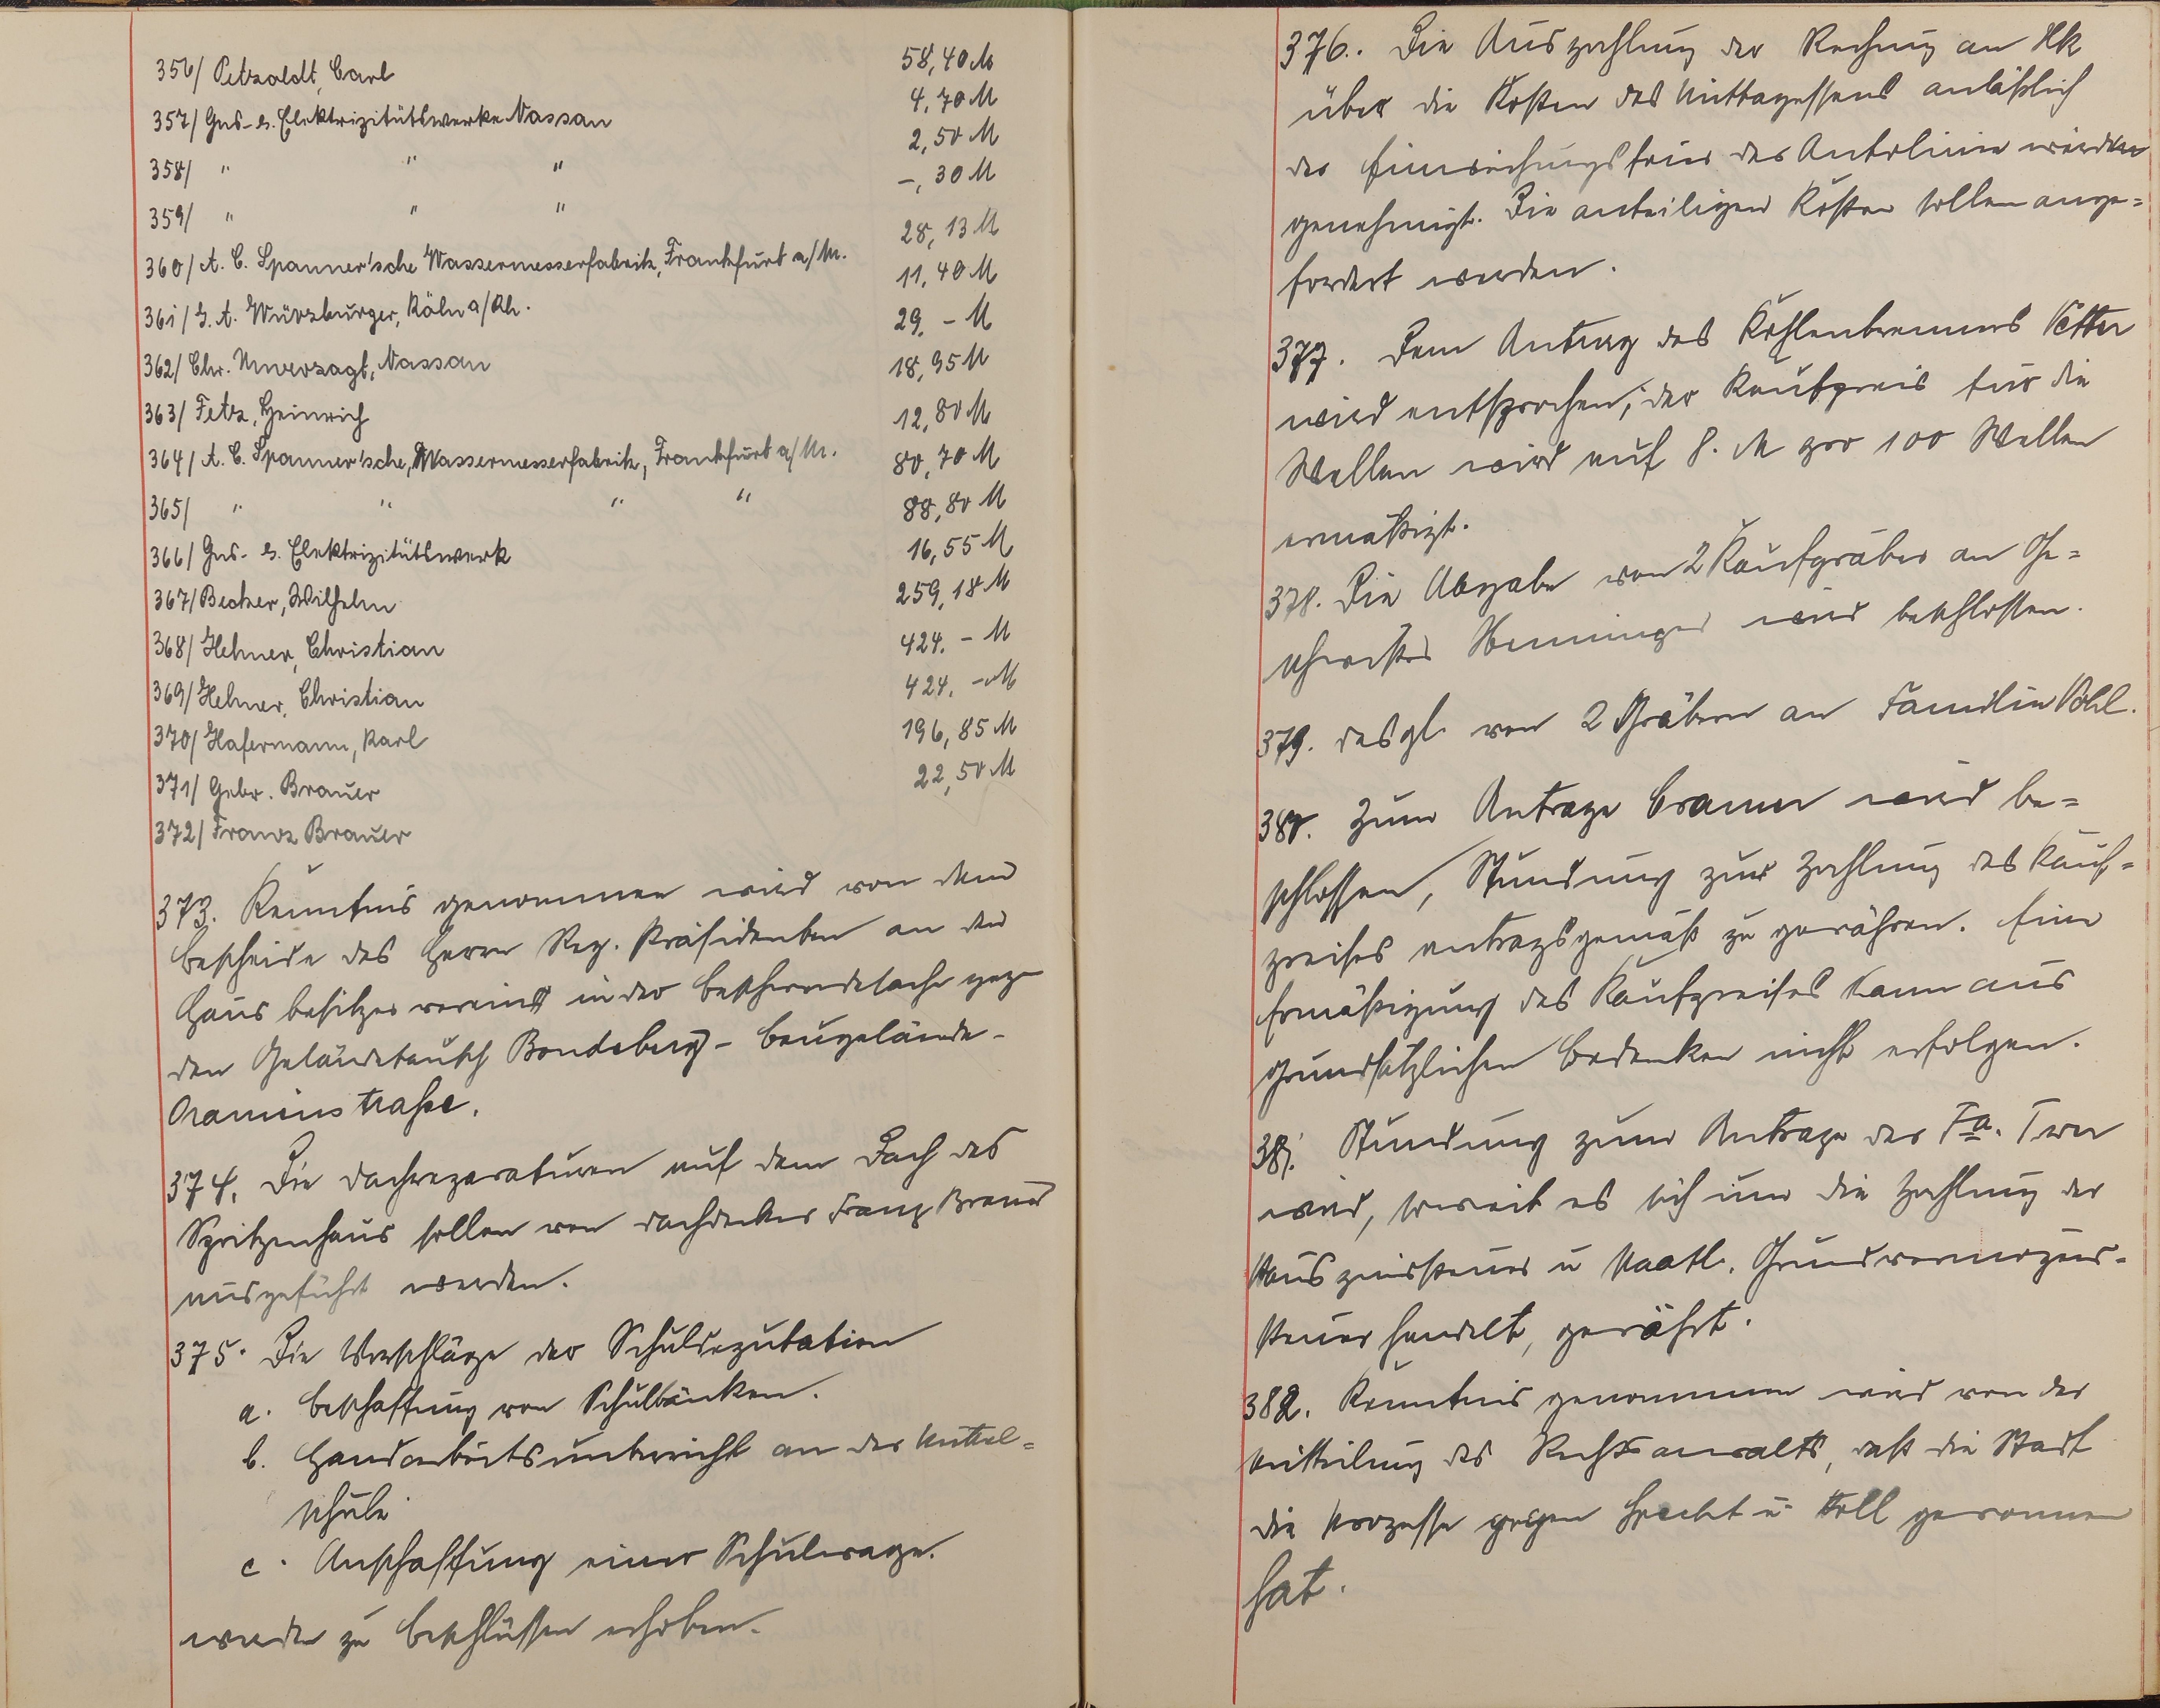 356/ Petzoldt, Carl 58,40 M
357/ Gas- u. Elektrizitätswerke Nassau 4,70 M
358/ " " " 2,50 M
359/ " " " -,30 M
360/ A. C. Spanner'sche Wassermesserfabrik, Frankfurt a/M. 28,13 M
361/ J. A. Würzburger, Köln a/Rh. 11,40 M
362/ Chr. Unverzagt, Nassau 29,- M
363/ Fetz, Heinrich 18,95 M
364/ A. C. Spanner'sche, Wassermesserfabrik, Frankfurt a/M. 12,80 M
365/ " " " " 80,70 M
366/ Gas- u. Elektrizitätswerk 88,80 M
367/ Becker, Wilhelm 16,55 M
368/ Hehner, Christian 259,18 M
369/ Hehner, Christian 424.- M
370/ Hafermann, Karl 424.- M
371/ Gebr. Brauer 196,85 M
372/ Franz Brauer 22,50 M
373. Kenntnis genommen wird von dem
Bescheide des Herrn Reg. Präsidenten an den
Hausbesitzerverein in der Beschwerdesache gegen
den Geländetausch - Baugelände-
Oranienstraße.
374. Die Dachreparaturen auf dem Dach des
Spritzenhaus sollen von Dachdecker Franz Brauer
ausgeführt werden.
375. Die Vorschläge der Schuldeputation
a. Beschaffung von Schulbänken.
b. Handarbeitsunterricht an der Mittel=
schule
c. Anschaffung einer Schulwage.
werden zu Beschlüssen erhoben.
376. Die Auszahlung der Rechnung an
über die Kosten des Mittagessens anläßlich
der Einweihungsfeier der Autolinie werden
genehmigt. Die anteiligen Kosten sollen ange=
fordert werden.
377. Dem Antrag des Kohlenbrenners Vetter
wird entsprochen, der Kaufpreis für die
Wellen wird auf 8. M pro 100 Wellen
ermäßigt.
378. Die Abgabe von 2 Kaufgräber an Ge=
schwister Henninger wird beschlossen.
379. desgl. von 2 Gräbern an Familie Pohl.
380. Zum Antrage Cramer wird be=
schlossen, Stundung zur Zahlung des Kauf=
preises antragsgemäß zu gewähren. Eine
Ermäßigung des Kaufpreises kann aus
grundsätzlichen Bedenken nicht erfolgen.
381. Stundung zum Antrage der Fa.
wird, soweit es sich um die Zahlung der
Hauszinssteuer u staatl. Grundvermögens-
steuer handelt, gewährt.
382. Kenntnis genommen wird von der
Mitteilung des Rechtsanwalts, daß die Stadt
die Prozesse gegen u. gewonnen
hat.